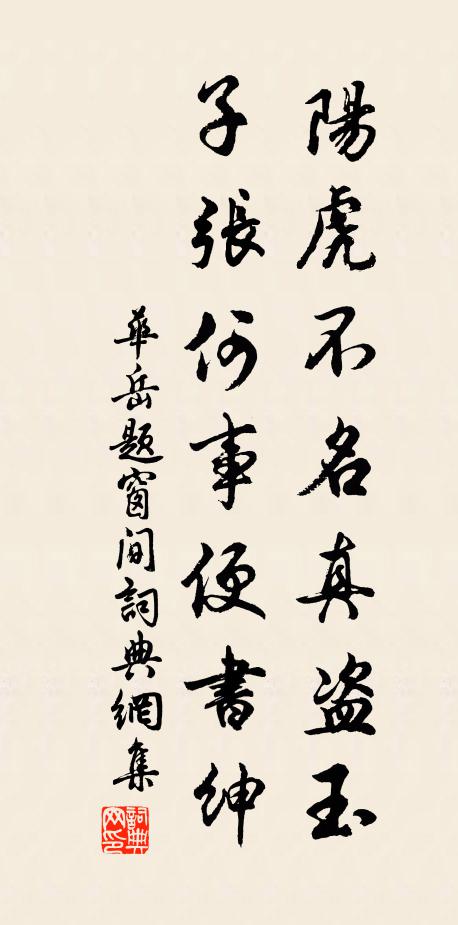 陽虎不名真盗玉
子張何事便書紳
華岳題窗間詞典網集
詞典网印